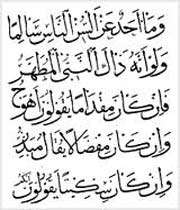 وَمَا أَحَدٌ عَنْ أَلْسُنِ النَّاسِ سَالِمًا
وَلَوْ أَنَّهُ ذَاكَ النَّبِيُّ الْمُطَهَّرُ
فَإِنْ كَانَ مِقْدَامًا يَقُولُونَ أَهْوَجُ
وَإِنْ كَانَ مِفْضَالًا يُقَالُ مُبَذِّرُ
وَإِنْ كَانَ سِكِّيتًا يَقُولُونَ